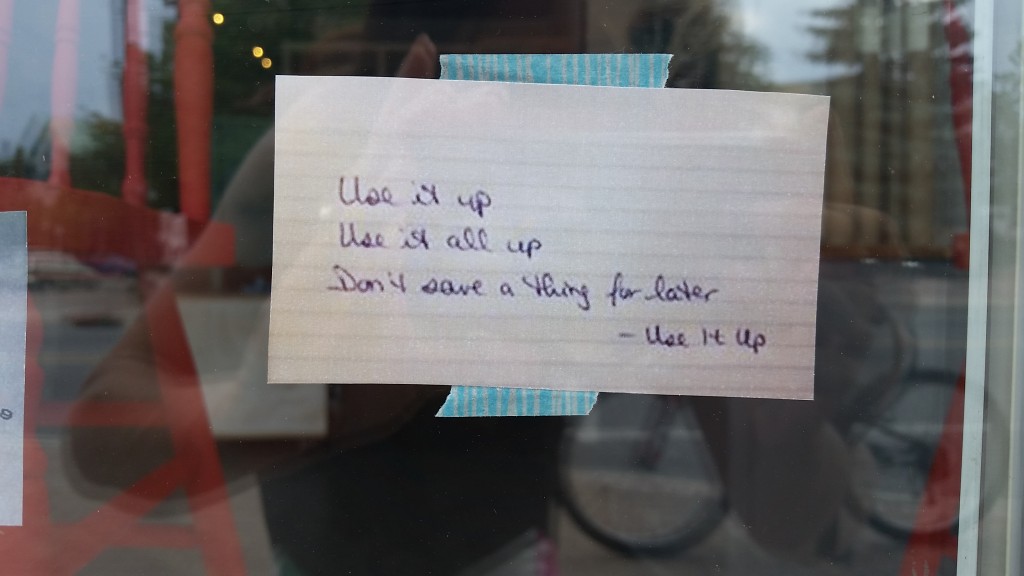 Use it up
Use it all up
Don't save a thing for later
- Use It Up